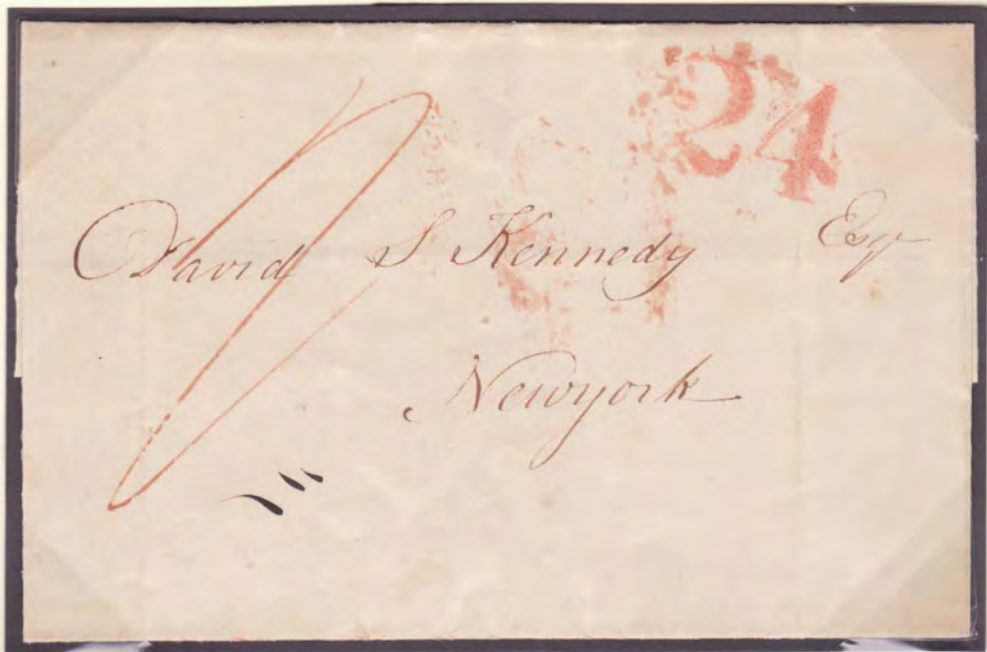 24
David S Kennedy Esqr
Newyork